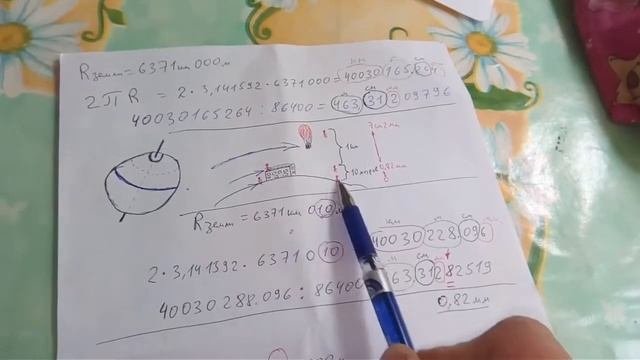 R земли = 6371 км 000 м
2πR = 2 · 3,141592 · 6371000 = 40030 165,264
км м см
40030165264 : 86400 = 463,31209796
м см мм
7 см 2 мм
1 км
10 метров 0,82 мм
R земли = 6371 км 010
2 · 3,141592 · 63710 10
40030 228.096
км м см
40030288.096 : 86400 63,31282519
0,82 мм